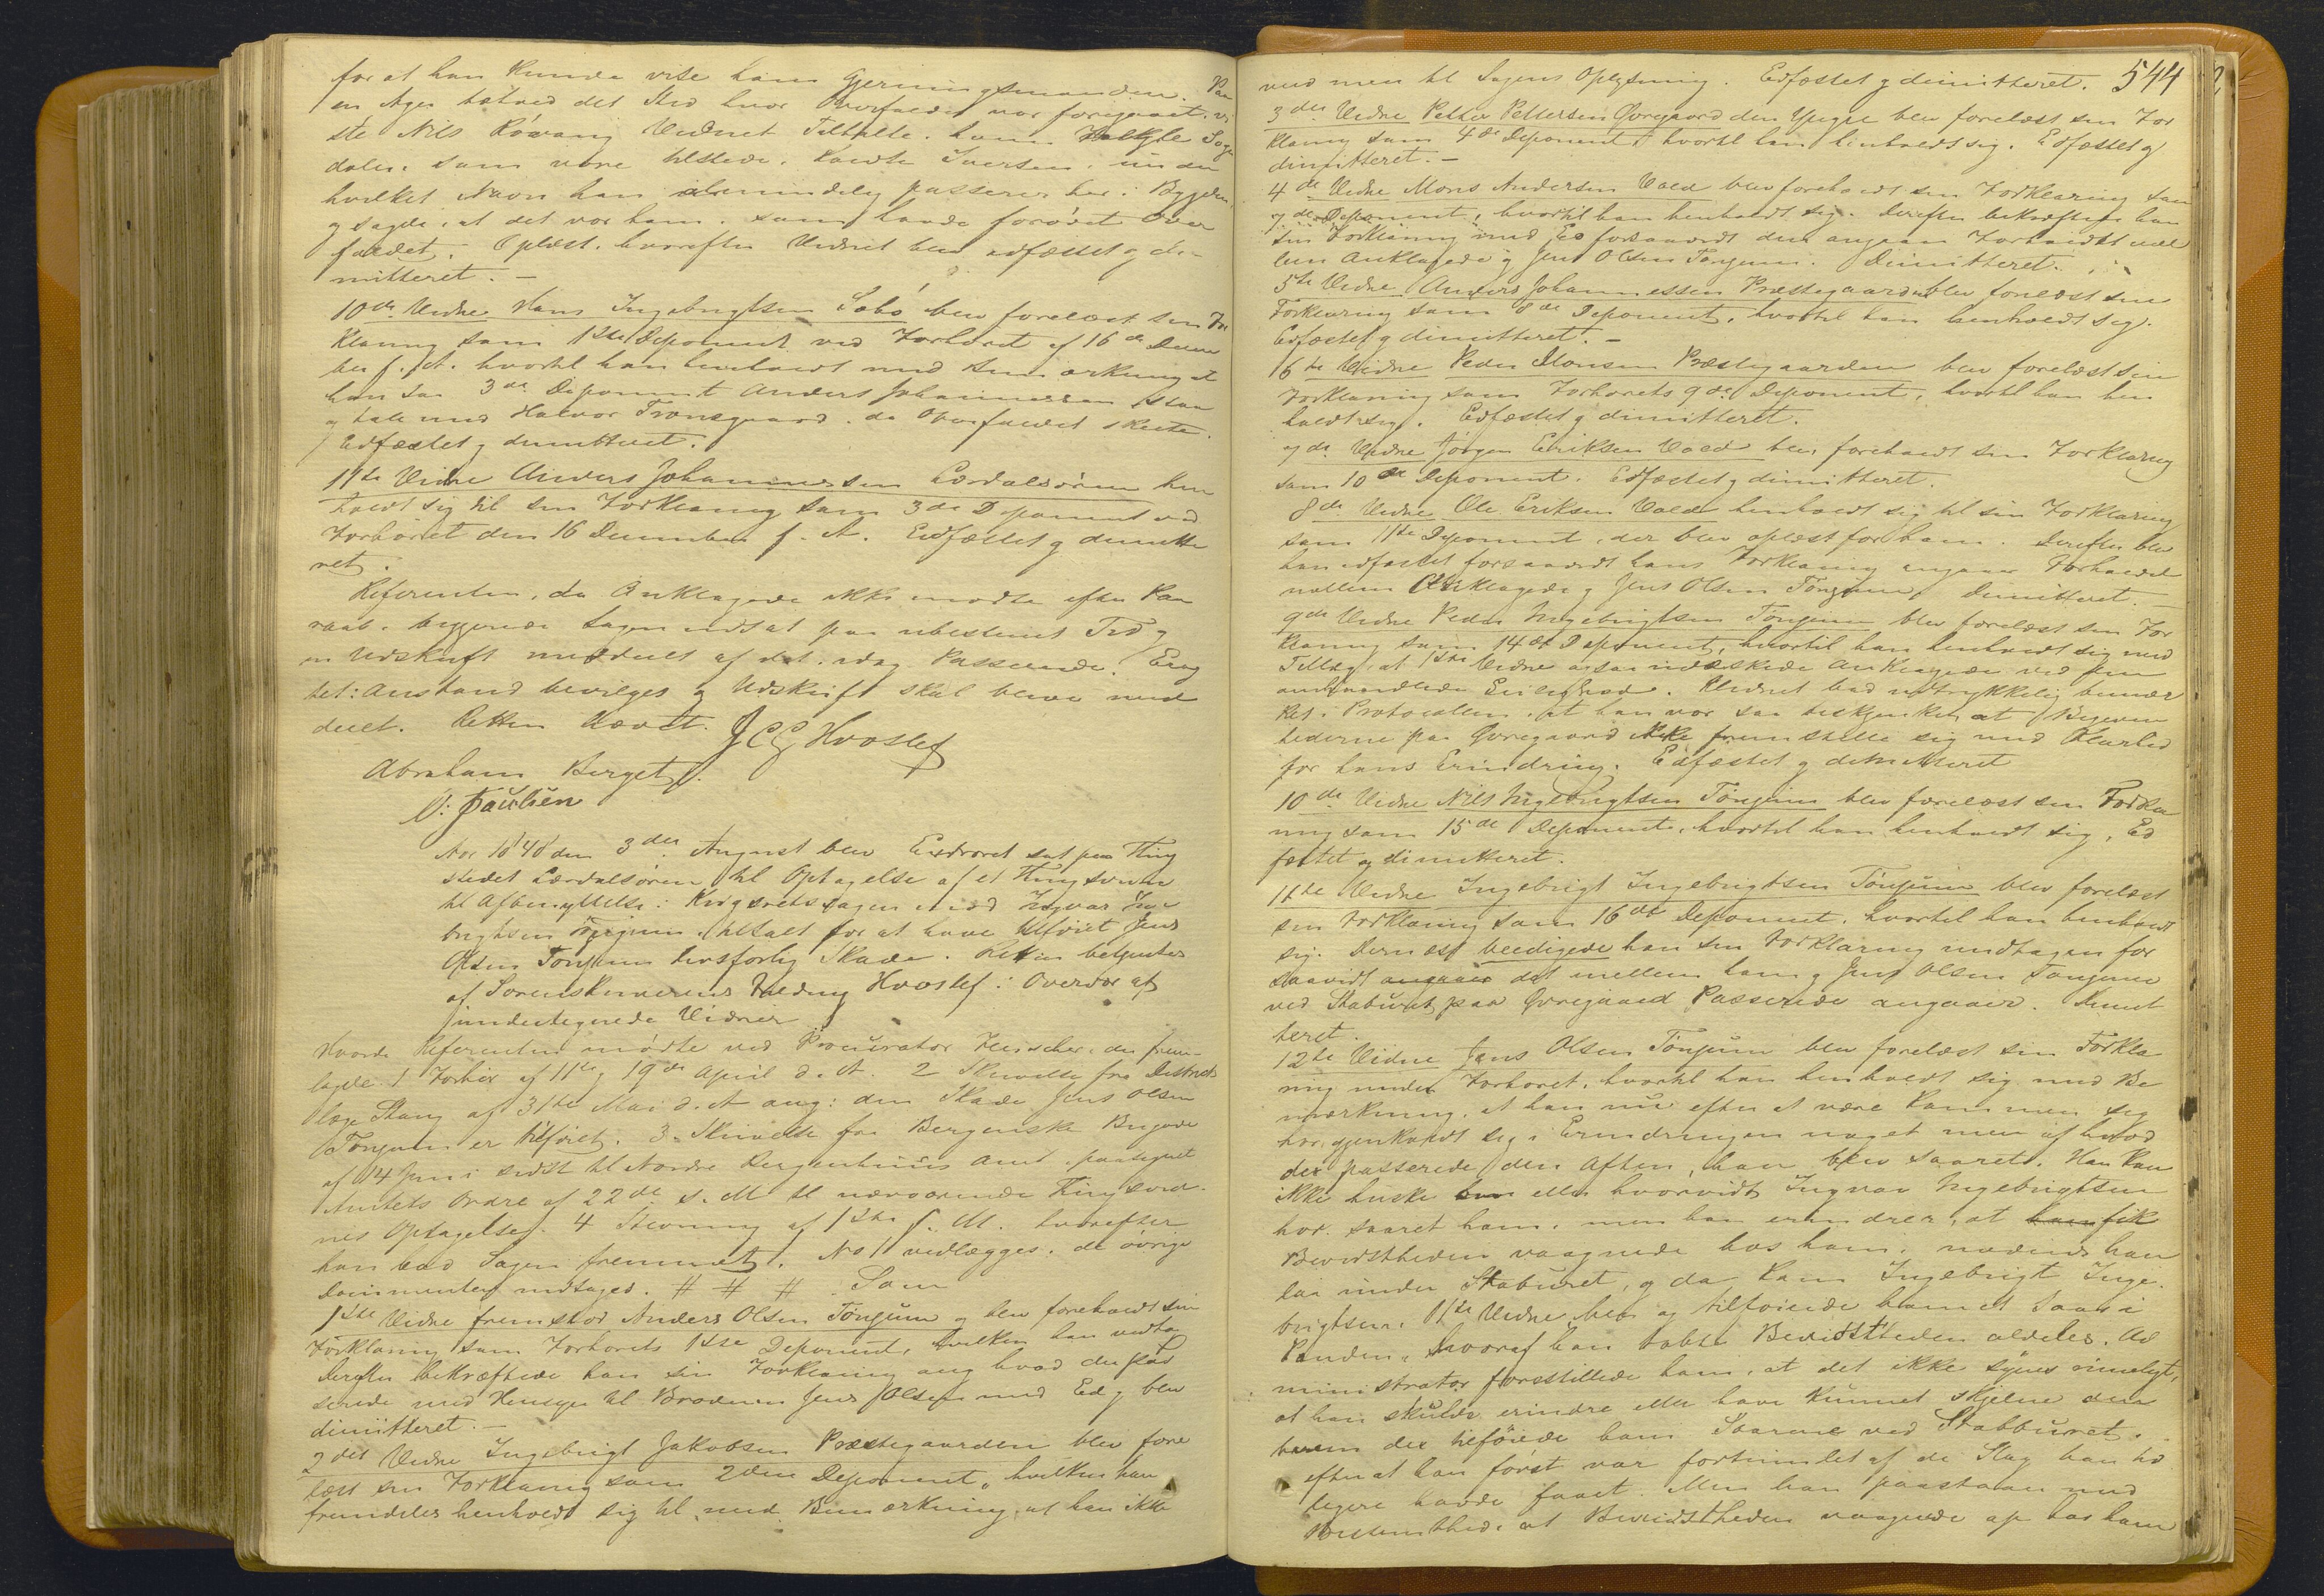 for at han kunde vise ham Gjerningsmanden. Paa
en Ager tætved det Sted hvor Overfaldet var foregaaet. vi
ste Nils Råvang Vidnet Tiltalte. ham Sogn
doler. som vare tilstede. kaldte Iversen. under
hvilket Navn han almindelig passerer her i Bygden,
og sagde, at det var ham. som havde forøvet Over
faldet. Oplæst. hvorefter Vidnet blev edfæstet og di-
mitteret. —
10de Vidne Hans Ingebrigtsen Sæbø blev forelæst sin For
klaring som 1ste Deponent ved Forhøret af 16de Decem
ber f. A. hvortil han henholdt med Bemærkning at
han saa 3die Deponent Anders Johannessen staa
og tale med Halvor Trønsgaard. da Overfaldet skeete.
Edfæstet og dimitteret.
11te Vidne Anders Johannessen Lærdalsøren hen
holdt sig til sin Forklaring som 3die Deponent ved
Forhøret den 16 December f. A. Eedfæstet og dimitte
ret.
Referenten, da Anklagede ikke mødte efter Paa
raab. begjerede Sagen udsat paa ubestemt Tid og
en Udskrift meddeelt af det. idag Passerede. Erag
tet: Anstand bevilges og Udskrift skal blive med
deelt. Retten hævet. J C G Hvoslef
Abraham Berget
O: Paulsen
Aar 1848 den 3die August blev Extraret sat paa Thing
stedet Lærdalsøren til Optagelse af et Thingsvidne
til Afbenyttelse i Krigsretssagen mod Ingvar Inge
brigtsen Tønjum. tiltalt for at have tilføiet Jens
Olsen Tønjum livsfarlig Skade. Retten betjentes
af Sorenskriverens Fuldmg Hvoslef i Overvær af
undertegnede Vidner
Hvorda Referenten mødte ved Procurator Fleischer. der frem-
lagde 1 Forhør af 11te og 19de April d. A. 2 Skrivelse fra Districts
læge Stang af 31te Mai d. A ang: den Skade Jens Olsen
Tønjum er tilføiet. 3. Skrivelse fra Bergenske Brigade
af 14 Juni sidst til Nordre Bergenhuus Amt. paategnet
Amtets Ordre af 22de s. M til nærværende Thingsvid-
nes Optagelse. 4 Stevning af 1ste f. M. hvorefter
han bad Sagen fremmet. No 1 vedlægges. de øvrige
Documenter indtages. # # # Som
1ste Vidne fremstod Anders Olsen Tönjum og blev foreholdt sin
Forklaring som Forhørets 1ste Deponent, hvilken han vedtog
Derefter bekræftede han sin Forklaring ang hvad der pas
serede med Hensyn til Broderen Jens Olsen med Eed og blev
dimitteret. —
2det Vidne Ingebrigt Jakobsen Præstegaarden blev fore
læst sin Forklaring som 2den Deponent. hvilken han
fremdeles henholdt sig til, med Bemærkning, at han ikke
544
veed mere til Sagens Oplysning. Eedfæstet og dimitteret.
3die Vidne Petter Pettersen Øvregaard den Yngre blev forelæst sin For
klaring som 4de Deponent, hvortil han henholdt sig. Edfæstet og
dimitteret. —
4de Vidne Mons Andersen Vold blev foreholdt sin Forklaring som
7de Deponent, hvortil han henholdt sig. Derefter bekræftede han
sin Forklaring med Ed forsaavidt den angaar Forholdet mel
lem Anklagede og Jens Olsen Tønjum. Dimitteret.
5te Vidne Anders Johannessen Præstegaarden blev forelæst sin
Forklaring som 8de Deponent, hvortil han henholdt sig.
Edfæstet og dimitteret. —
6te Vidne Peder Monsen Præstegaarden blev forelæst sin
Forklaring som Forhørets 9de Deponent, hvortil han hen
holdt sig. Edfæstet og dimitteret.
7de Vidne Jørgen Eriksen Vold blev foreholdt sin Forklaring
som 10de Deponent. Edfæstet og dimitteret.
8de Vidne Ole Eriksen Vold henholdt sig til sin Forklaring
som 11te Deponent, der blev oplæst for ham. Derefter blev
han edfæstet forsaavidt hans Forklaring angaar Forholdet
mellem Anklagede og Jens Olsen Tønjum. Dimitteret. —
9de Vidne Peder Ingebrigtsen Tönjum blev forelæst sin For
klaring som 14de Deponent, hvortil han henholdt sig med
Tillæg, at 1ste Vidne ogsaa Anklagede ved sin
Vidnet bad udtrykkelig bemær
ket i Protocollen. at han var saa beskjenket at Begiven
hederne paa Øvregaard ikke fremstille sig med Klarhed
for hans Erindring. Edfæstet og dimitteret
10de Vidne Nils Ingebrigtsen Tönjum blev forelæst sin Forkla
ring som 15de Deponent, hvortil han henholdt sig, Ed
fæstet og dimitteret.
11te Vidne Ingebrigt Ingebrigtsen Tönjum blev forelæst
sin Forklaring som 16de Deponent. hvortil han henholdt
sig. Dernæst beedigede han sin Forklaring undtagen for
saavidt angaar det mellem ham og Jens Olsen Tønjum
ved Staburet paa Øvregaard Passerede angaaer. Dimit
teret.
12te Vidne Jens Olsen Tönjum blev forelæst sin Forkla
ring under Forhøret, hvortil han henholdt sig med Be
mærkning. at han nu efter at være kommen sig
har gjenkaldt sig i Erindringen noget mere af hvad
der passerede den Aften, han blev saaret. Han kan
ikke huske hvem eller hvorvidt Ingvar Ingebrigtsen
har saaret ham. men han erindrer, at han fik
Bevidstheden vaagnede hos ham. medens han
laa under Staburet, og da kom Ingebrigt Inge-
brigtsen. 11te Vidne hen og tilføiede ham et Saar i
Panden. hvoraf han tabte Bevidstheden aldeles. Ad
ministrator forestillede ham, at det ikke synes rimeligt,
at han skulde erindre eller have kunnet skjelne den
der tilføiede ham Saarene ved Stabburet.
efter at han først var fortumlet af de Slag han tid
ligere havde faaet. Men han paastaar med
Bestemthed. at Bevidstheden vaagnede op hos ham